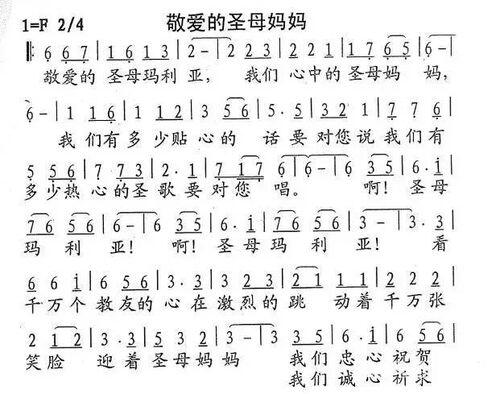 敬爱的圣母妈妈
1=F 2/4
6 6 7 | 1 6 1 3 | 2 - | 2 2 3 | 3 2 1 | 1 7 6 5 | 6 - |
敬爱的 圣母玛利 亚, 我们 心中的 圣母妈 妈,
6 - | 1 1 6 | 1 1 2 | 3 5 6 | 5 . 5 | 3 2 2 | 1 7 7 6 |
我们有多少贴心的 话要对您说我们有
5 5 5 6 | 7 7 3 | 2 . 1 | 7 1 7 | 6 | 6 - | 6 . 3 5 | 6 . i |
多少热心的圣歌要对您 唱。 啊! 圣母
7 6 5 6 | 6 - | 6 3 5 | 6 . i | 7 6 5 6 | 3 - | 3 . 3 |
玛 利 亚! 啊! 圣母玛利 亚! 看
6 6 i | 6 5 6 | 3 . 3 | 2 3 5 | 3 2 1 | 2 1 1 | 2 2 2 |
千万个 教友的 心在激烈的跳 动着千万张
2 1 2 | 3 . 3 | 5 3 2 | 3 - | 3 3 5 | 6 . i | 6 5 6 |
笑脸 迎着圣母妈妈 我们忠心祝贺
我们诚心祈求